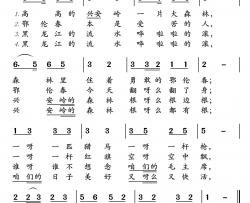 1.高 高 的 兴安 岭 一 片 大 森 林,
2.鄂 伦 春 本 是 受 苦 的 人,
3.黑 龙 江 的 流 水 哗 啦 啦 的 滚,
4.黑 龙 江 的 流 水 哗 啦 啦 的 滚,
森 林 里 住 着 勇 敢 的 鄂 伦 春;
鄂 伦 春 今 天 翻 呀 了 身;
兴 安 岭 的 森 林 根 连 根;
兴 安 岭 的 森 林 都 有 根;
1 3 3 2 3 3 3 5 2 2 5
一 呀 一 匹 猎 马 一 呀 一 杆 枪,
一 呀 一 杆 红 旗 空 呀 空 中 飘,
谁 呀 谁 不 想 念 咱 们 的 毛 主 席,
咱 们 的 日 子 美 好 又 呀 么 又 快 活,